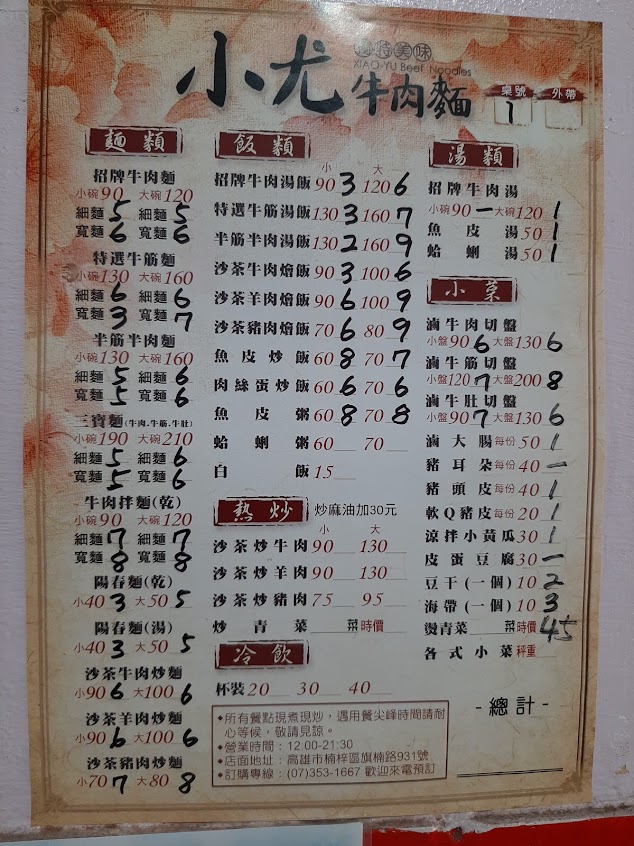 獨特美味
小尤 牛肉麵
XIAO-YU Beef Noodles
桌號 外帶
1
麵類
招牌牛肉麵
小碗90 大碗120
細麵5 細麵5
寬麵6 寬麵6
特選牛筋麵
小碗130 大碗160
細麵6 細麵6
寬麵3 寬麵7
半筋半肉麵
小碗130 大碗160
細麵5 細麵6
寬麵5 寬麵6
三寶麵(牛肉.牛筋.牛肚)
小碗190 大碗210
細麵5 細麵6
寬麵5 寬麵6
牛肉拌麵(乾)
小碗90 大碗120
細麵7 細麵7
寬麵8 寬麵8
陽春麵(乾)
小40 3 大50 5
陽春麵(湯)
小40 3 大50 5
沙茶牛肉炒麵
小90 6 大100 6
沙茶羊肉炒麵
小90 6 大100 6
沙茶豬肉炒麵
小70 7 大80 8
飯類
小 大
招牌牛肉湯飯 90 3 120 6
特選牛筋湯飯 130 3 160 7
半筋半肉湯飯 130 2 160 9
沙茶牛肉燴飯 90 3 100 6
沙茶羊肉燴飯 90 6 100 9
沙茶豬肉燴飯 70 6 80 9
魚皮炒飯 60 8 70 7
肉絲蛋炒飯 60 6 70 6
魚皮粥 60 8 70 8
蛤蜊粥 60 70
白飯 15
熱炒 炒麻油加30元
小 大
沙茶炒牛肉 90 130
沙茶炒羊肉 90 130
沙茶炒豬肉 75 95
炒青菜 菜時價
冷飲
杯裝 20 30 40
•所有餐點現煮現炒，遇用餐尖峰時間請耐
心等候，敬請見諒。
•營業時間：12:00-21:30
•店面地址：高雄市楠梓區旗楠路931號
•訂購專線：(07)353-1667 歡迎來電預訂
湯類
招牌牛肉湯
小碗90 一 大碗120 1
魚皮湯 50 1
蛤蜊湯 50 1
小菜
滷牛肉切盤
小盤90 6 大盤130 6
滷牛筋切盤
小盤120 7 大盤200 8
滷牛肚切盤
小盤90 7 大盤130 6
滷大腸 每份50 1
豬耳朵 每份40 一
豬頭皮 每份40 1
軟Q豬皮 每份20 1
涼拌小黃瓜 30 1
皮蛋豆腐 30 一
豆干(一個) 10 2
海帶(一個) 10 3
燙青菜 菜時價 45
各式小菜 秤重
- 總計 -